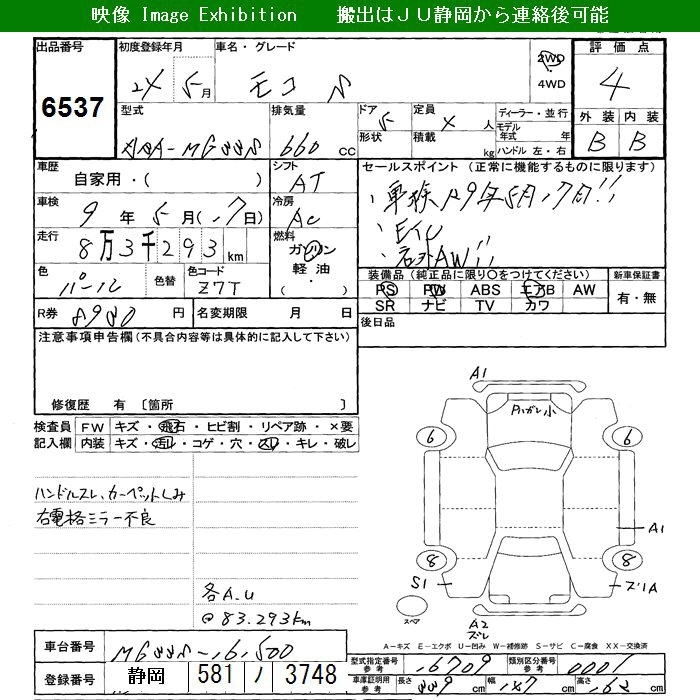 映像 Image Exhibition　　搬出はJU静岡から連絡後可能
出品番号
6537
初度登録年月
24 5月
車名・グレード
モコ S
2WD
4WD
評価点
4
外装 内装
B B
型式
排気量
660 cc
ドア
5
形状
定員
4 人
積載
kg
ディーラー・並行
モデル年式 年
ハンドル 左・右
車歴
自家用・( )
シフト
AT
車検
9年 5月(17日)
冷房
AC
走行
8万3千293km
燃料
ガソリン
軽油
( )
色
パール
色替
色コード
Z7T
セールスポイント (正常に機能するものに限ります)
・車検R9年5月17日!!
・ETC
・社外AW!!
装備品 (純正品に限り○をつけてください)
PS PW ABS エアB AW
SR ナビ TV カワ
新車保証書
有・無
R券
8980円
名変期限 月 日
後日品
注意事項申告欄 (不具合内容等は具体的に記入して下さい)
修復歴 有 〔箇所 〕
検査員記入欄
FW キズ・飛石・ヒビ割・リペア跡・×要
内装 キズ・汚レ・コゲ・穴・スレ・キレ・破レ
ハンドルスレ、カーペットしみ
右電格ミラー不良
各A.U
@83.293km
A1
Pハガレ小
6
6
A1
8
8
S1
ズ1A
スペア
A2
ズレ
A－キズ E－エクボ U－凹み W－補修跡 S－サビ C－腐食 XX－交換済
車台番号
登録番号
静岡 581 ノ 3748
型式指定番号
参考
16709
類別区分番号
参考
0001
車庫証明用
参考
長さ
339 cm
幅
147 cm
高さ
162 cm